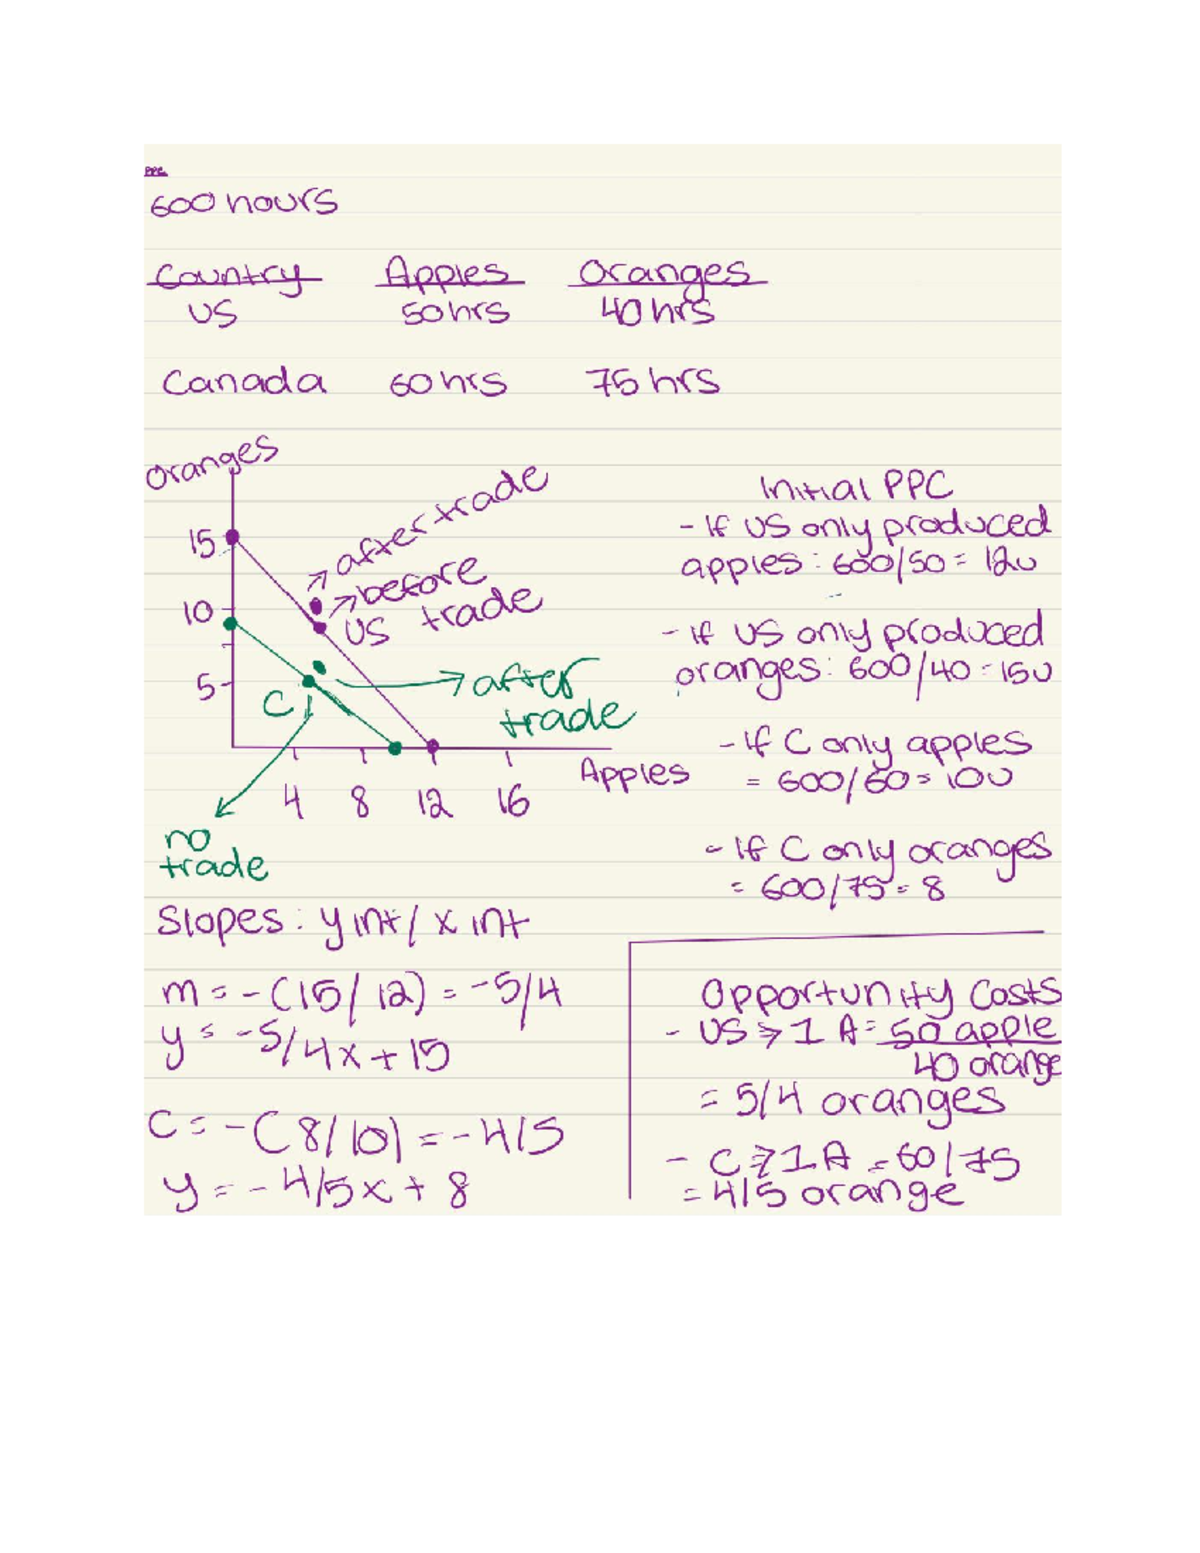 PPC
600 hours
Country Apples Oranges
US 50 hrs 40 hrs
Canada 60 hrs 75 hrs
Oranges
15
10
5
after trade
before trade
US
C
after trade
no trade
4 8 12 16
Apples
Initial PPC
- If US only produced
apples: 600/50 = 12u
- If US only produced
oranges: 600/40 = 15u
- If C only apples
= 600/60 = 10u
- If C only oranges
= 600/75 = 8
Slopes: y int / x int
m = -(15/12) = -5/4
y = -5/4x + 15
C = -(8/10) = -4/5
y = -4/5x + 8
Opportunity Costs
- US → 1 A = 50 apple
40 orange
= 5/4 oranges
- C → 1 A = 60/75
= 4/5 orange